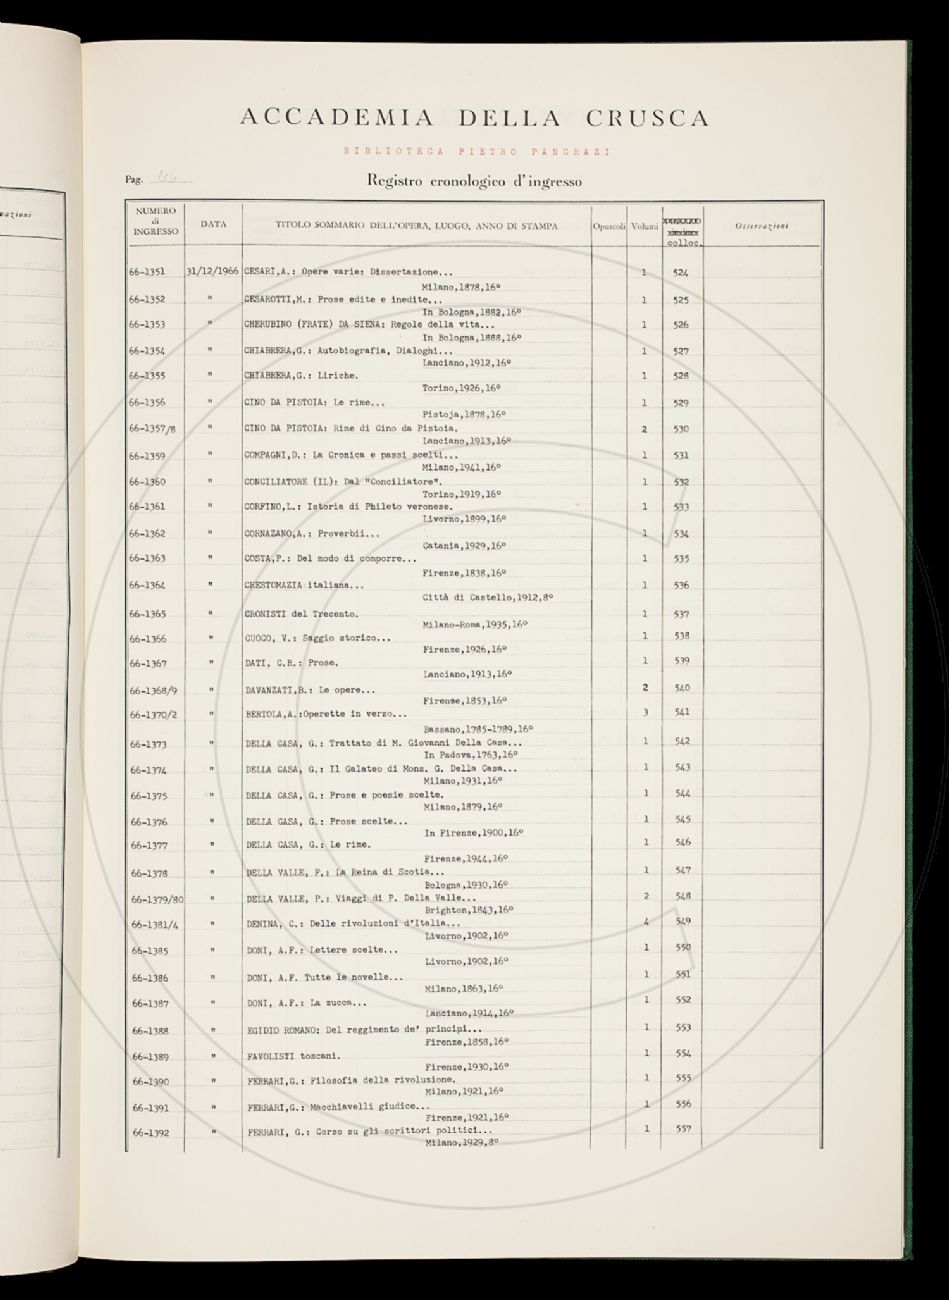 vazioni
ACCADEMIA DELLA CRUSCA
BIBLIOTECA PIETRO PANCRAZI
Pag.
Registro cronologico d'ingresso
NUMERO di INGRESSO DATA TITOLO SOMMARIO DELL'OPERA, LUOGO, ANNO DI STAMPA Opuscoli Volumi colloc. Osservazioni
66-1351 31/12/1966 CESARI,A.: Opere varie: Dissertazione... 1 524
Milano,1878,16º
66-1352 " CESAROTTI,M.: Prose edite e inedite... 1 525
In Bologna,1882,16º
66-1353 " CHERUBINO (FRATE) DA SIENA: Regole della vita... 1 526
In Bologna,1888,16º
66-1354 " CHIABRERA,G.: Autobiografia, Dialoghi... 1 527
Lanciano,1912,16º
66-1355 " CHIABRERA,G.: Liriche. 1 528
Torino,1926,16º
66-1356 " CINO DA PISTOIA: Le rime... 1 529
Pistoja,1878,16º
66-1357/8 " CINO DA PISTOIA: Rime di Cino da Pistoia. 2 530
Lanciano,1913,16º
66-1359 " COMPAGNI,D.: La Cronica e passi scelti... 1 531
Milano,1941,16º
66-1360 " CONCILIATORE (IL): Dal "Conciliatore". 1 532
Torino,1919,16º
66-1361 " CORFINO,L.: Istoria di Phileto veronese. 1 533
Livorno,1899,16º
66-1362 " CORNAZANO,A.: Proverbii... 1 534
Catania,1929,16º
66-1363 " COSTA,P.: Del modo di comporre... 1 535
Firenze,1838,16º
66-1364 " CRESTOMAZIA italiana... 1 536
Città di Castello,1912,8º
66-1365 " CRONISTI del Trecento. 1 537
Milano-Roma,1935,16º
66-1366 " CUOCO, V.: Saggio storico... 1 538
Firenze,1926,16º
66-1367 " DATI, C.R.: Prose. 1 539
Lanciano,1913,16º
66-1368/9 " DAVANZATI,B.: Le opere... 2 540
Firenze,1853,16º
66-1370/2 " BERTOLA,A.:Operette in verso... 3 541
Bassano,1785-1789,16º
66-1373 " DELLA CASA, G.: Trattato di M. Giovanni Della Casa... 1 542
In Padova,1763,16º
66-1374 " DELLA CASA, G.: Il Galateo di Mons. G. Della Casa... 1 543
Milano,1931,16º
66-1375 " DELLA CASA, G.: Prose e poesie scelte. 1 544
Milano,1879,16º
66-1376 " DELLA CASA, G.: Prose scelte... 1 545
In Firenze,1900,16º
66-1377 " DELLA CASA, G.: Le rime. 1 546
Firenze,1944,16º
66-1378 " DELLA VALLE, F.: La Reina di Scotia... 1 547
Bologna,1930,16º
66-1379/80 " DELLA VALLE, P.: Viaggi di P. Della Valle... 2 548
Brighton,1843,16º
66-1381/4 " DENINA, C.: Delle rivoluzioni d'Italia... 4 549
Livorno,1902,16º
66-1385 " DONI, A.F.: Lettere scelte... 1 550
Livorno,1902,16º
66-1386 " DONI, A.F. Tutte le novelle... 1 551
Milano,1863,16º
66-1387 " DONI, A.F.: La zucca... 1 552
Lanciano,1914,16º
66-1388 " EGIDIO ROMANO: Del reggimento de' principi... 1 553
Firenze,1858,16º
66-1389 " FAVOLISTI toscani. 1 554
Firenze,1930,16º
66-1390 " FERRARI,G.: Filosofia della rivoluzione. 1 555
Milano,1921,16º
66-1391 " FERRARI,G.: Macchiavelli giudice... 1 556
Firenze,1921,16º
66-1392 " FERRARI, G.: Corso su gli scrittori politici... 1 557
Milano,1929,8º